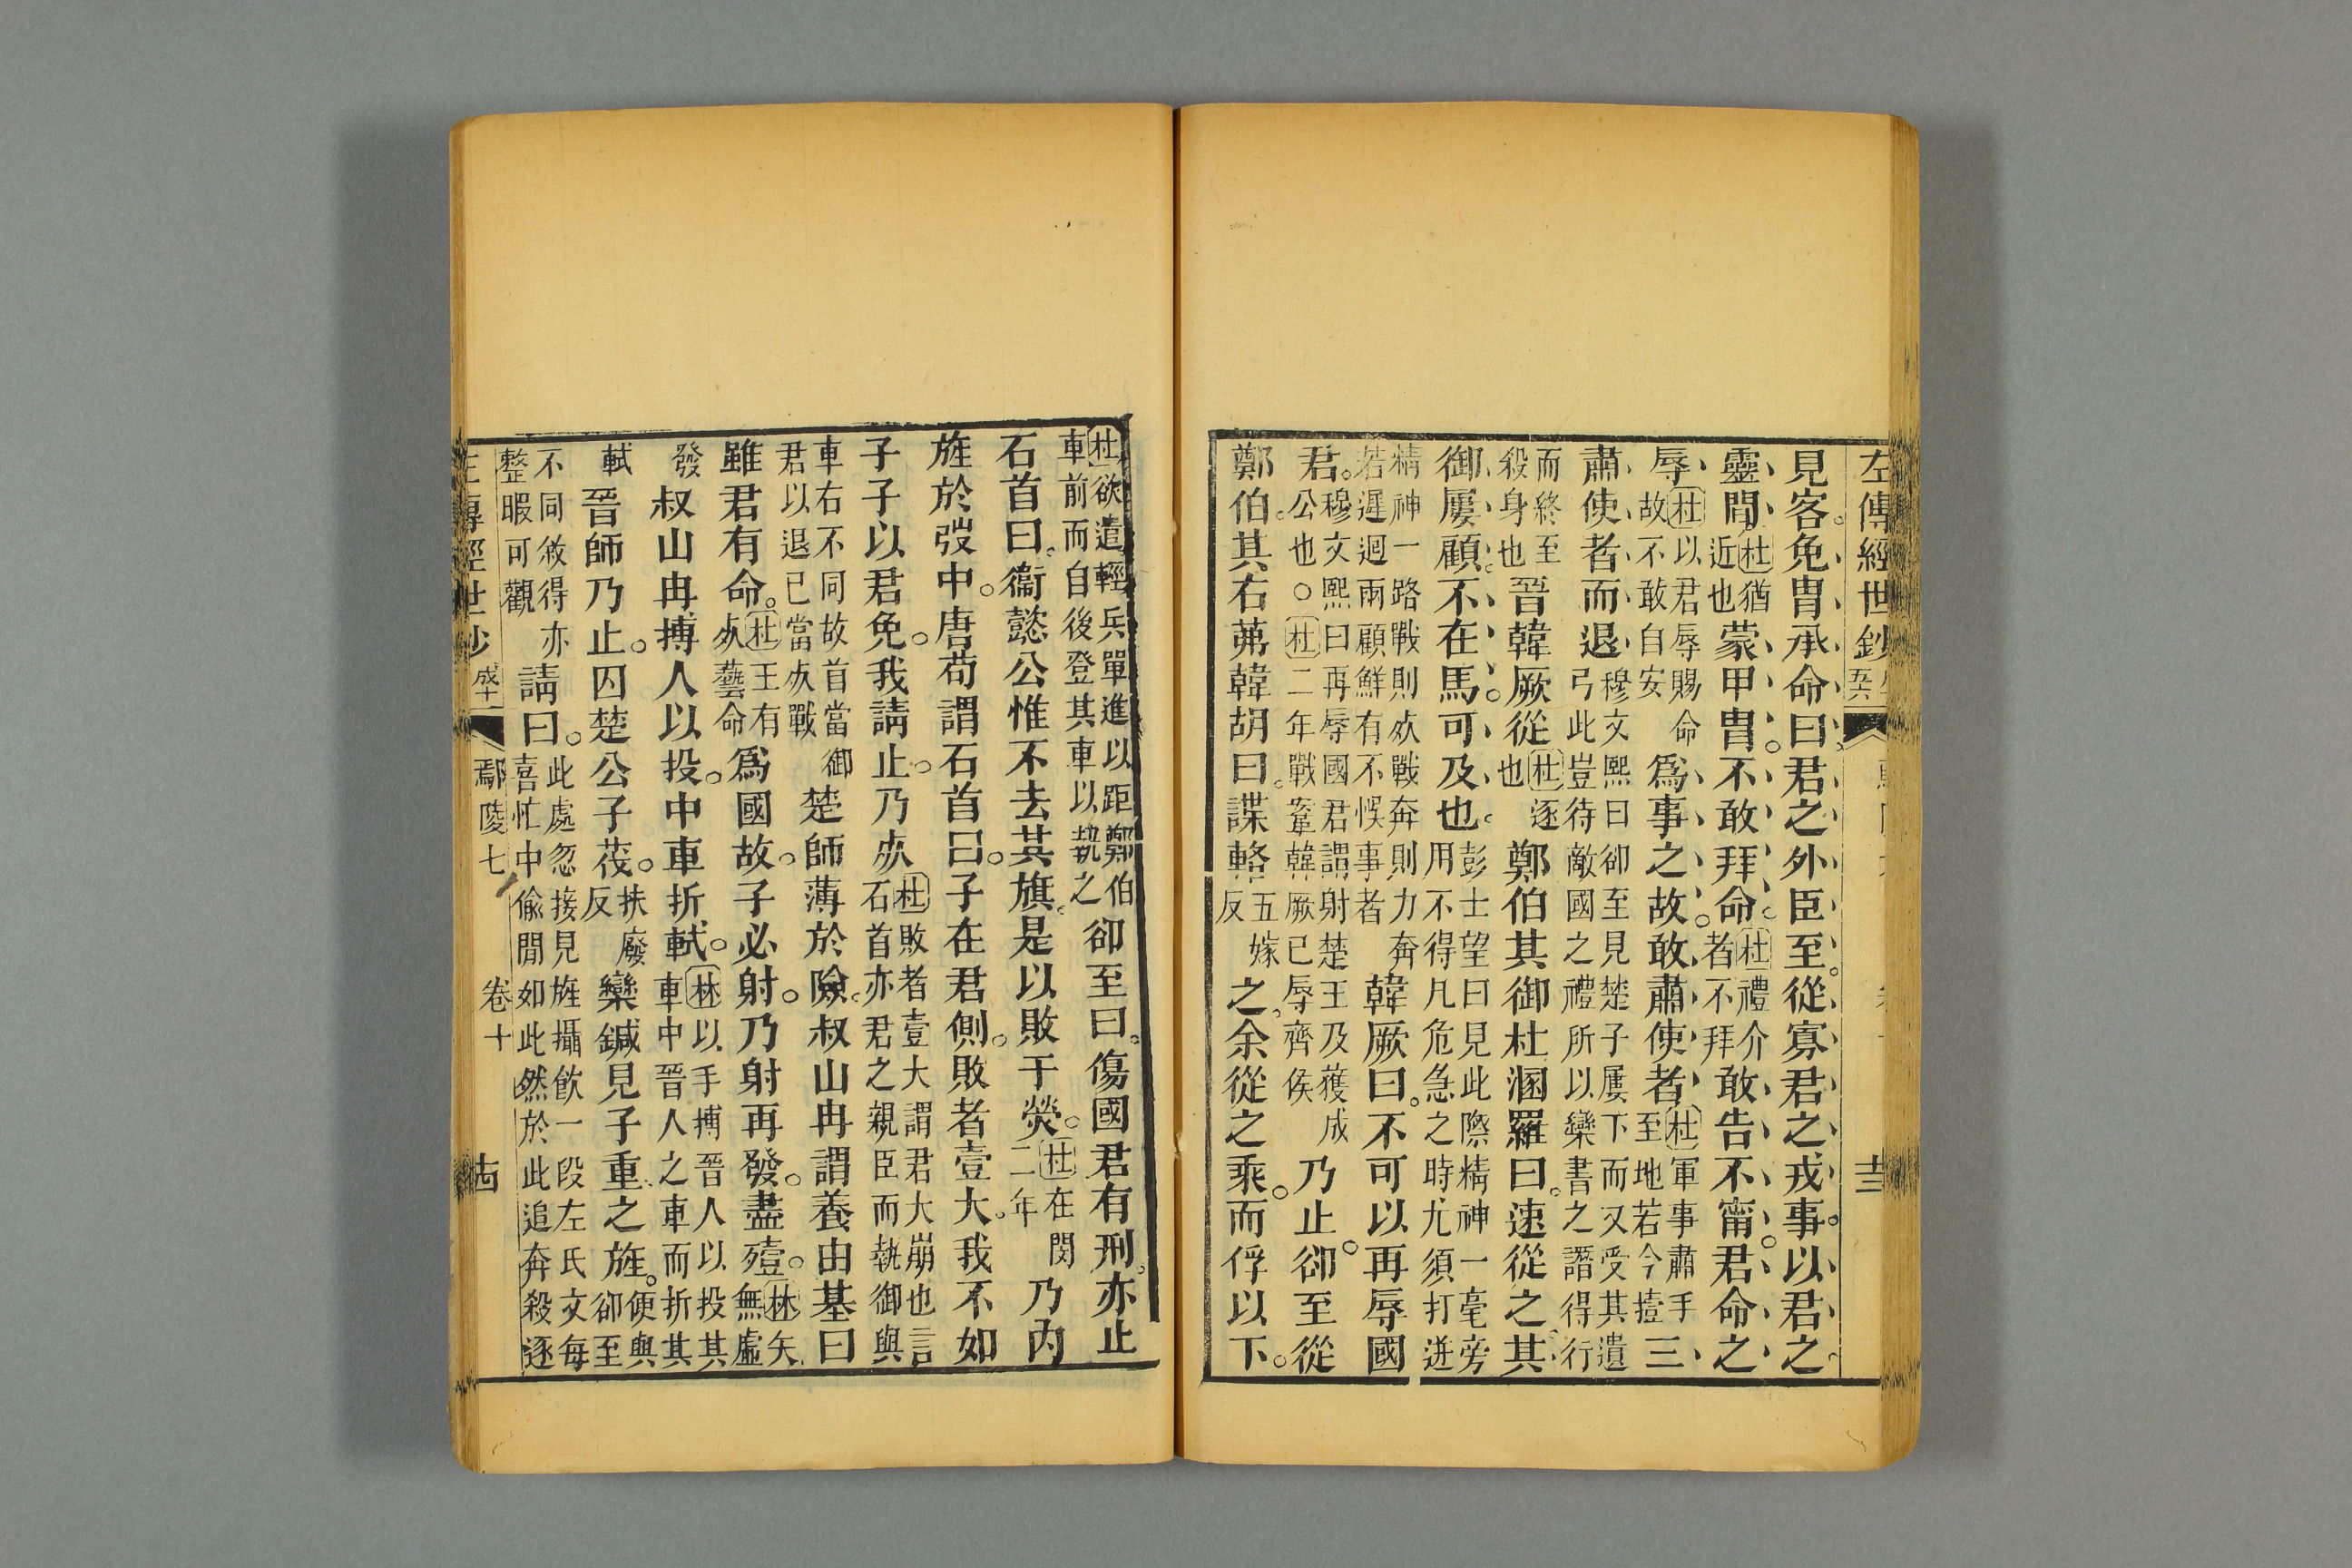 左傳經世鈔
見客免冑承命曰君之外臣至從寡君之戎事以君之
靈間杜猶近也蒙甲冑不敢拜命杜禮介者不拜敢告不甯君命之
辱杜以君辱賜命故不敢自安爲事之故敢肅使者杜軍事肅手至地若今撎三
肅使者而退穆文熙曰卻至見楚子屢下而又受其遺弓此豈待敵國之禮所以欒書之譖得行
而終至殺身也晉韓厥從杜逐也鄭伯其御杜溷羅曰速從之其
御屢顧不在馬可及也彭士望曰見此際精神一毫旁用不得凡危急之時尤須打迸
精神一路戰則㱕戰奔則力奔若遲迴兩顧鮮有不悞事者韓厥曰不可以再辱國
君穆文熙曰再辱國君謂射楚王及獲成公也○杜二年戰鞌韓厥已辱齊侯乃止卻至從
鄭伯其右茀韓胡曰諜輅五嫁反之余從之乘而俘以下
杜欲遣輕兵單進以距鄭伯車前而自後登其車以執之卻至曰傷國君有刑亦止
石首曰衞懿公惟不去其旗是以敗于熒杜在閔二年乃內
旌於弢中唐苟謂石首曰子在君側敗者壹大我不如
子子以君免我請止乃㱕杜敗者壹大謂君大崩也言石首亦君之親臣而執御與
車右不同故首當御君以退已當㱕戰楚師薄於險叔山冉謂養由基曰
雖君有命杜王有㱕藝命爲國故子必射乃射再發盡殪林矢無虛
發叔山冉搏人以投中車折軾林以手搏晉人以投其車中晉人之車而折其
軾晉師乃止囚楚公子茷扶廢反欒鍼見子重之旌便與卻至
不同敘得亦整暇可觀請曰此處忽接見旌攝飮一段左氏文每喜忙中偸閒如此然於此追奔殺逐
左傳經世鈔 成十 鄢陵七 卷十